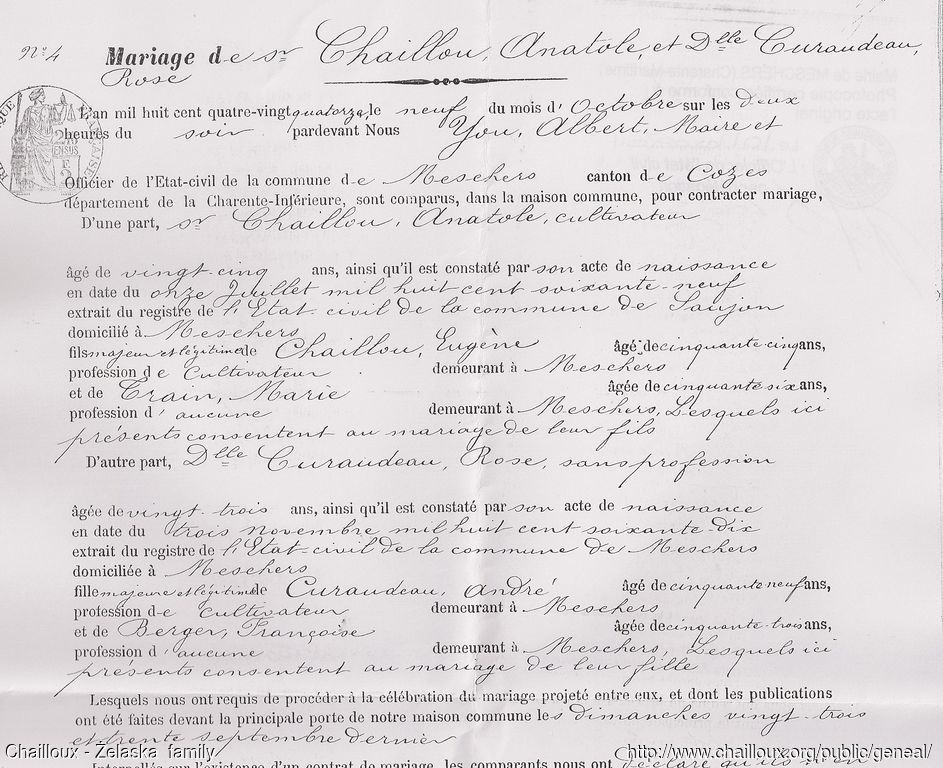 N° 4
Mariage de sr Chaillou, Anatole, et Dlle Curaudeau,
Rose
L'an mil huit cent quatre-vingt quatorze, le neuf du mois d'Octobre sur les deux
heures du soir pardevant Nous You, Albert, Maire et
Officier de l'Etat-civil de la commune de Meschers canton de Cozes
département de la Charente-Inférieure, sont comparus, dans la maison commune, pour contracter mariage,
D'une part, sr Chaillou, Anatole, cultivateur
âgé de vingt-cinq ans, ainsi qu'il est constaté par son acte de naissance
en date du onze Juillet mil huit cent soixante-neuf
extrait du registre de l'Etat-civil de la commune de Saujon
domicilié à Meschers
fils majeur et légitime de Chaillou, Eugène âgé de cinquante cinq ans,
profession de Cultivateur demeurant à Meschers
et de Train, Marie âgée de cinquante six ans,
profession d'aucune demeurant à Meschers, Lesquels ici
présents consentent au mariage de leur fils
D'autre part, Dlle Curaudeau, Rose, sans profession
âgée de vingt-trois ans, ainsi qu'il est constaté par son acte de naissance
en date du trois novembre mil huit cent soixante-dix
extrait du registre de l'Etat-civil de la commune de Meschers
domiciliée à Meschers
fille majeure et légitime de Curaudeau, André âgé de cinquante neuf ans,
profession de Cultivateur demeurant à Meschers
et de Berger, Françoise âgée de cinquante-trois ans,
profession d'aucune demeurant à Meschers, Lesquels ici
présents consentent au mariage de leur fille
Lesquels nous ont requis de procéder à la célébration du mariage projeté entre eux, et dont les publications
ont été faites devant la principale porte de notre maison commune les dimanches vingt-trois
et trente septembre dernier
Interpellés sur l'existence d'un contrat de mariage, les comparants nous ont déclaré qu'ils n'en
Chailloux - Żelaska family
http://www.chailloux.org/public/geneal/